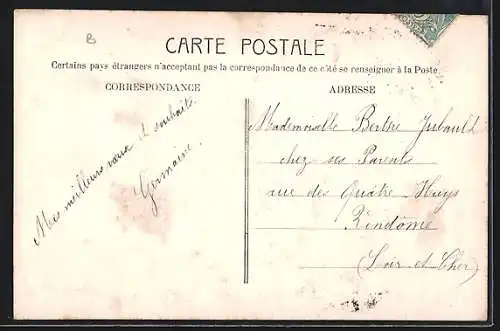 B
CARTE POSTALE
Certains pays étrangers n'acceptant pas la correspondance de ce côté se renseigner à la Poste.
CORRESPONDANCE
ADRESSE
Mes meilleurs vœux et souhaits.
Germaine.
Mademoiselle Berthe Jubault
chez ses Parents
rue des Quatre Huys
Vendôme
(Loir-et-Cher)